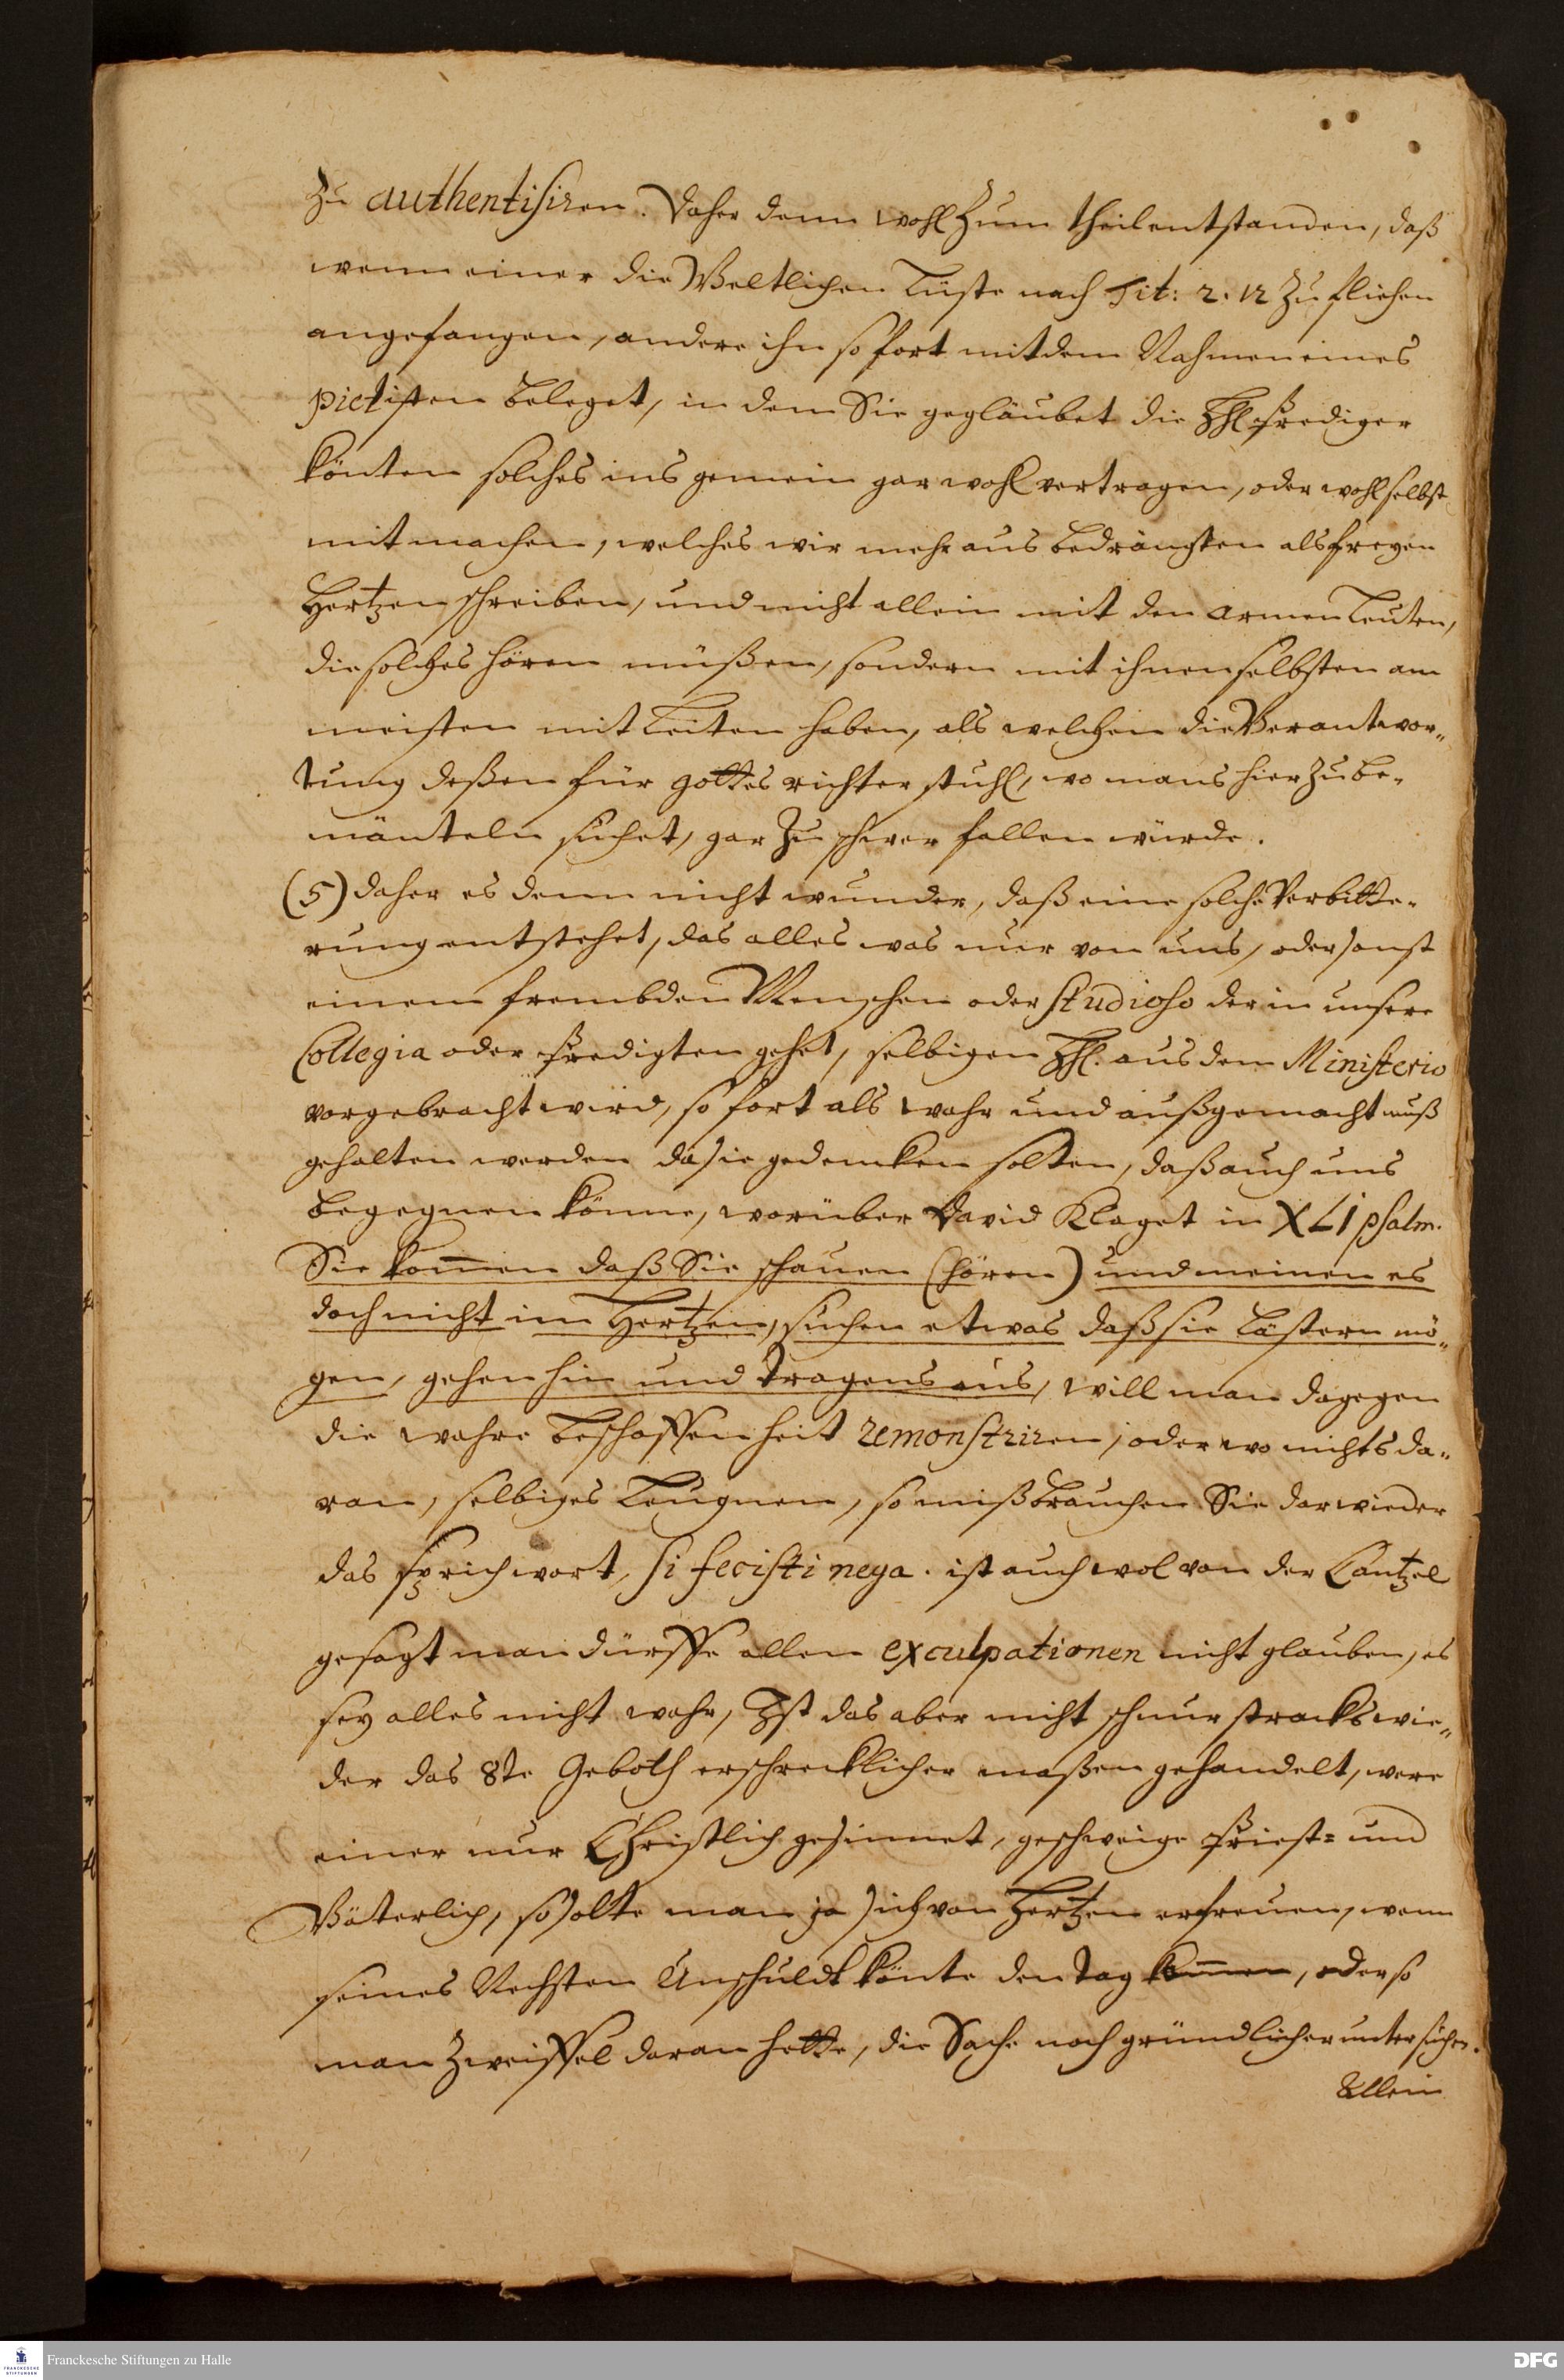 zu authentisiren. Daher denn wohl zum theil entstanden, daß
wenn einer die Weltlichen Lüste nach Tit: 2. 12 zu fliehen
angefangen, andere ihn so fort mit dem Nahmen eines
pietisten beleget, in dem Sie gegläubet die HhE Prediger
könten solches ins gemein gar wohl vertragen, oder wohl selbst
mit machen, welches wir mehr aus bedrängten als freyen
Hertzen schreiben, und nicht allein mit den armen Leuten,
die solches hören müßen, sondern mit ihnen selbsten am
meisten mit Leiten haben, als welchen die Verantwor„
tung deßen für gottes richter stuhl, wo mans hier zu be„
mänteln suchet, gar zu schwer fallen würde.
(5) daher es denn nicht wunder, daß eine solche Verbitte„
rung entstehet, das alles was nur von uns, oder sonst
einem frembden Menschen oder Studioso der in unsere
Collegia oder Predigten gehet, selbigen Hh. aus dem Ministerio
vorgebracht wird, so fort als wahr und außgemacht muß
gehalten werden da sie gedencken solten, daß auch uns
begegnen könne, worüber David Klaget in XLI psalm.
Sie kom̅en daß Sie schauen (hören) und meinen es
doch nicht im Hertzen, suchen etwas daß sie Lästern mö„
gen, gehen hin und tragens aus, will man dagegen
die wahre beschaffenheit remonstriren, oder wo nichts da„
ran, selbiges Leugnen, so mißbrauchen Sie darwieder
das sprichwort, si fecisti nega. ist auch wol von der Cantzel
gesagt man dürffe allen exculpationen nicht glauben, es
sey alles nicht wahr, Ist das aber nicht schnur stracks wie„
der das 8te Geboth erschrecklicher maßen gehandelt, were
einer nur Christlich gesinnet, geschweige Priest= und
Väterlich, so solte man ja sich von Hertzen erfreuen, wenn
seines Nechsten Unschuldt könte den Tag kom̅en, oder so
man Zweiffel daran hette, die Sache noch gründlicher untersuchen.
Allein
Franckesche Stiftungen zu Halle
DFG